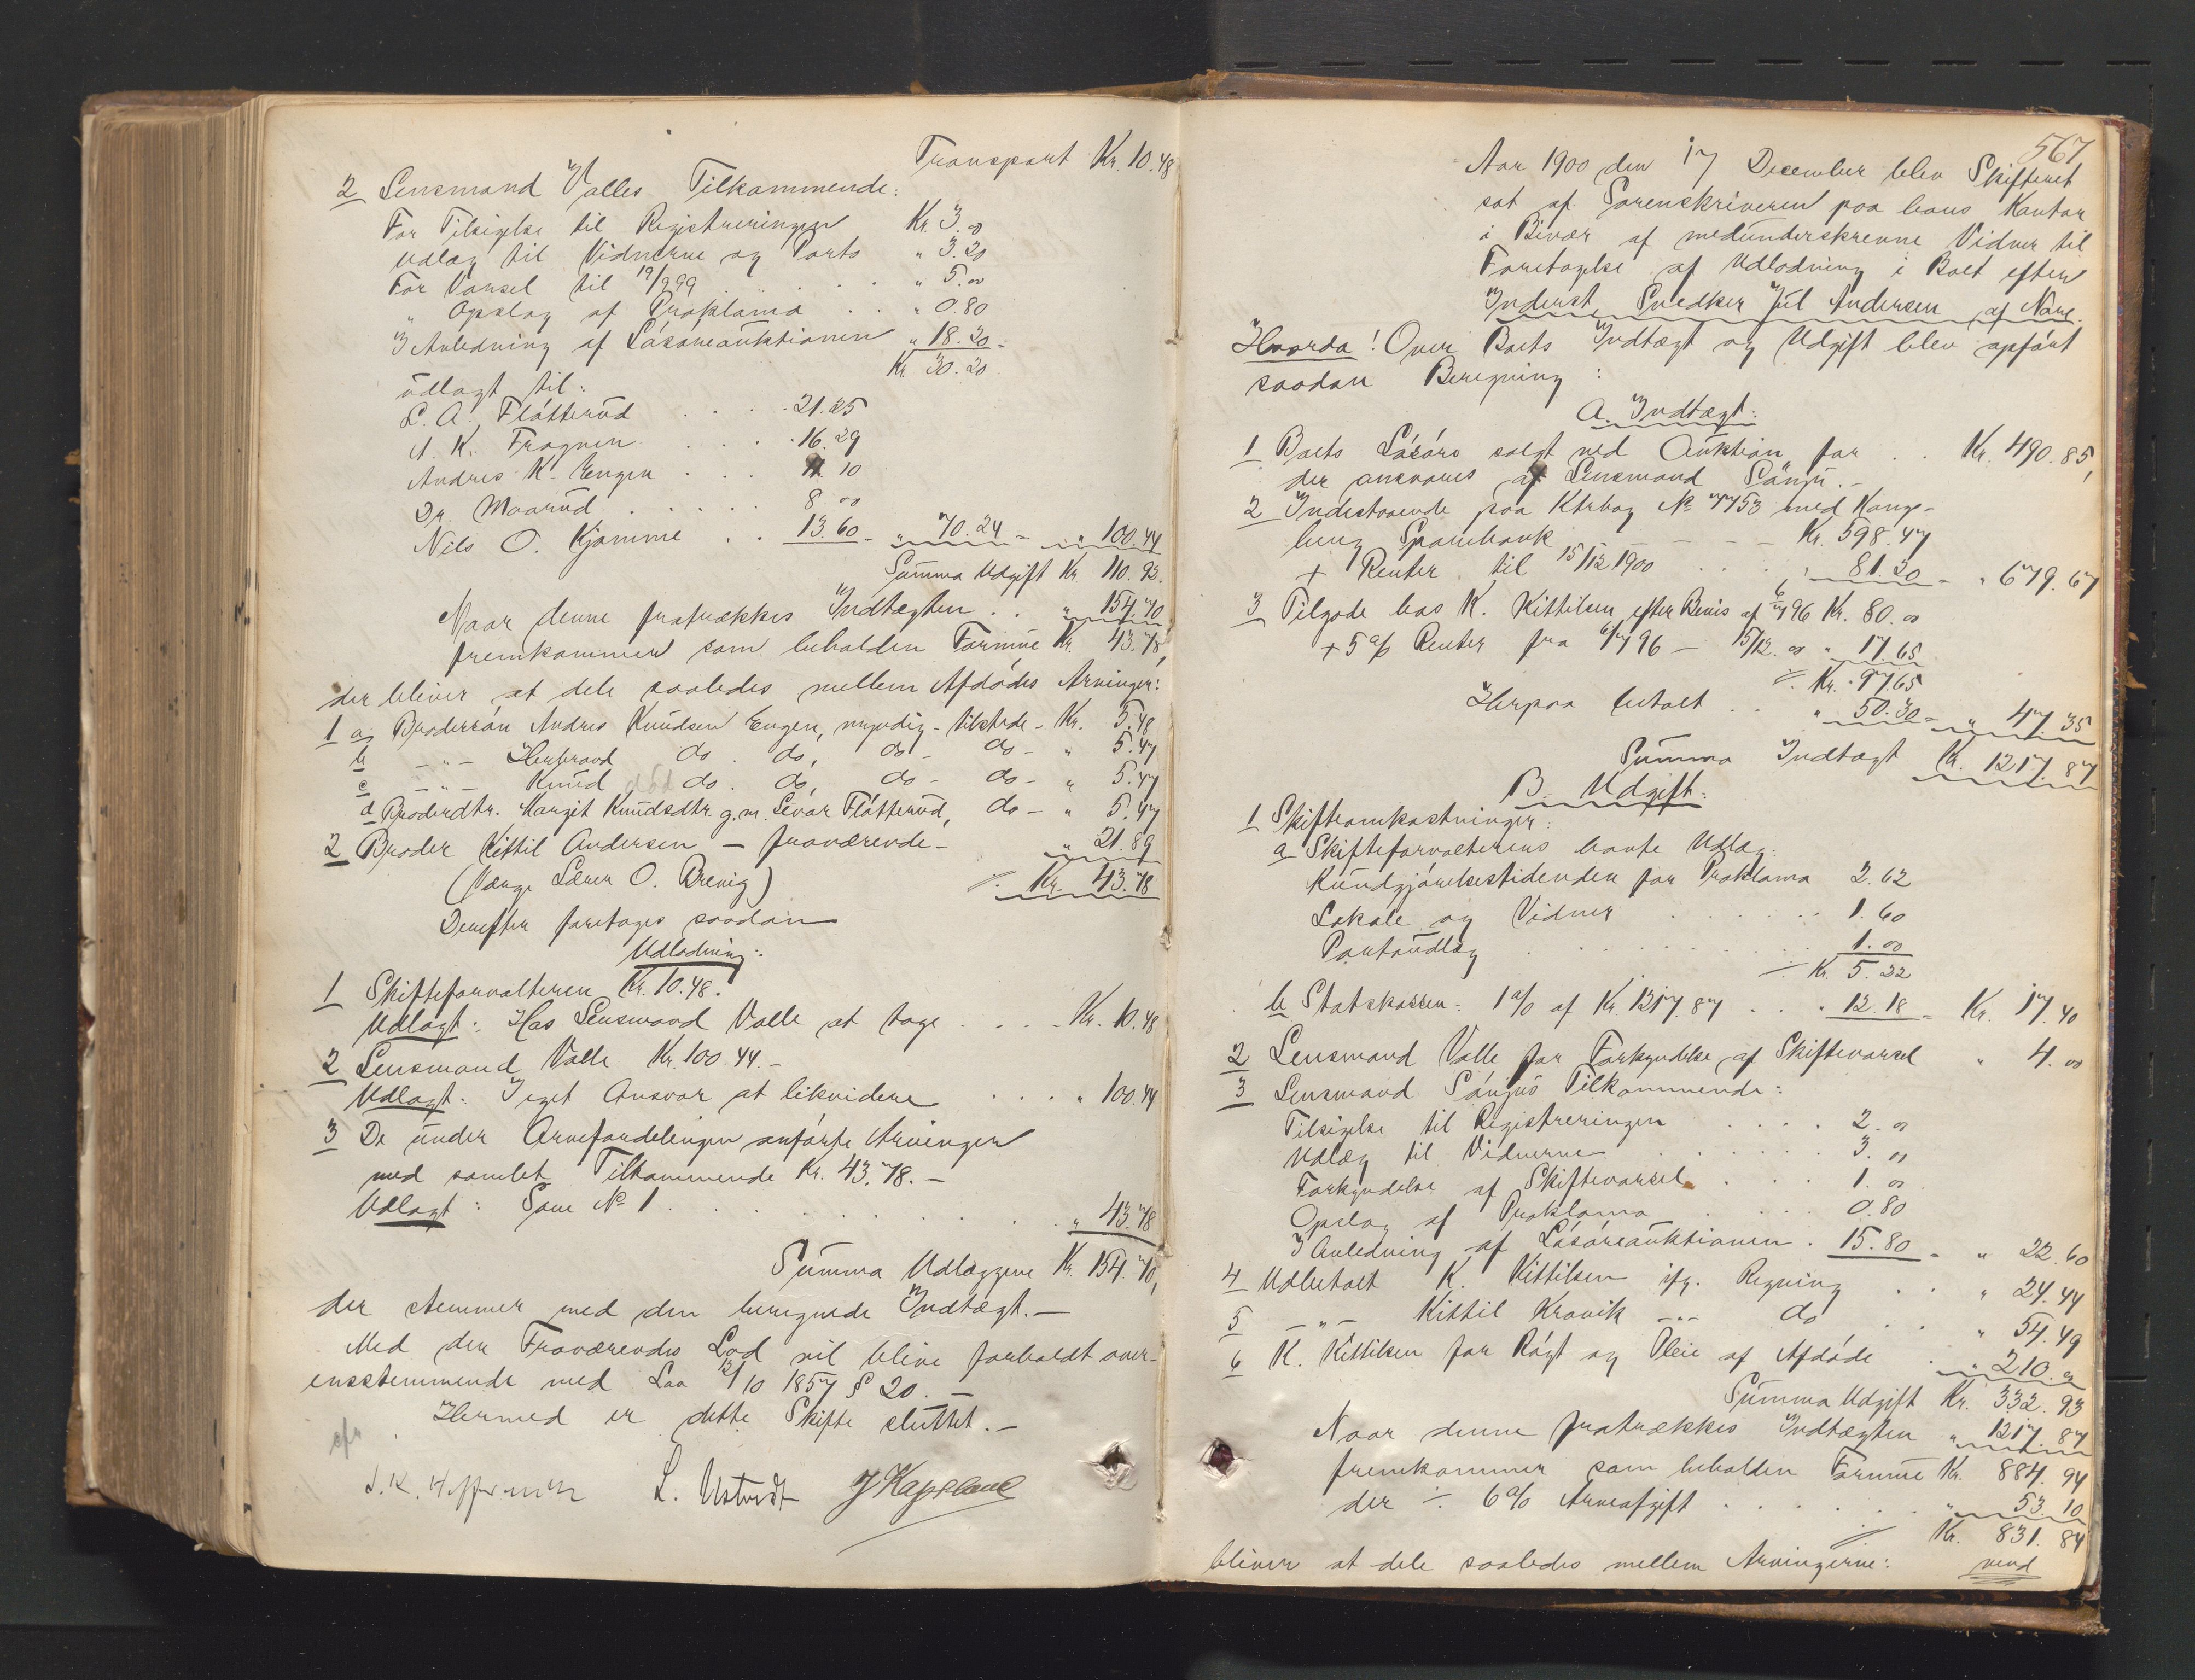 Transport Kr. 10.48
2 Lensmand Valles Tilkommende:
For Tilsigelse til Registreringen Kr. 3.00
Udlæg til Vidnerne og Porto " 3.20
For Varsel til 19/9 99 . . . . " 5.00
" Opslag af Proklama . . " 0.80
I Anledning af Løsøreauktionen " 18.20
Kr. 30.20
udlagt til:
L. A. Fløtterud . . . . 21.25
A. K. Frognen . . . . 16.29
Andres K. Engen . . 11.10
Dr. Maarud . . . . . 8.00
Nils O. Kjomme . . 13.60 - " 70.24 - " 100.44
Summa Udgift Kr. 110.92.
Naar denne fratrækkes Indtægten . . " 154.70,
fremkommer som beholden Formue Kr. 43.78,
der bliver at dele saaledes mellem Afdødes Arvinger:
1 a, Brodersøn Andres Knudsen Engen, myndig - tilstede - Kr. 5.48
b -"- Herbrand do. do, do - do - " 5.47
c -"- Knud do. do, do - do - " 5.47
d Broderdtr. Margit Knudsdtr. g.m. Sevar Fløtterud, do - " 5.47
2 Broder Kittil Andersen - fraværende - " 21.89
(Værge Lærer O. Brevig) ∕. Kr. 43.78
Derefter foretages saadan
Udlodning:
1 Skifteforvalteren Kr. 10.48.
Udlagt: Hos Lensmand Valle at tage . . . - Kr. 10.48
2 Lensmand Valle Kr. 100.44. -
Udlagt: I eget Ansvar at likvidere . . . . " 100.44
3 De under Arvefordelingen anførte Arvinger
med samlet Tilkommende Kr. 43.78. -
Udlagt: Som No 1 . . . . . . . . " 43.78
Summa Udlæggene Kr. 154.70,
der stemmer med den beregnede Indtægt. -
Med den Fraværendes Lod vil blive forholdt over-
ensstemmende med Lov 12/10 1857 § 20. -
Hermed er dette Skifte sluttet. -
L. Ustvedt
567
Aar 1900 den 17 December blev Skifteret
sat af Sorenskriveren paa hans Kontor
i Bivær af medunderskrevne Vidner til
Foretagelse af Udlodning i Boet efter
Inderst, Snedker Jul Andersen af Nore.
Hvorda! Over Boets Indtægt og Udgift blev opført
saadan Beregning:
A. Indtægt:
1 Boets Løsøre solgt ved Auktion for . . Kr. 490.85,
der ansvares af Lensmand . -
2 Indestaaende paa Ktrbog No 7753 med Kongs-
berg Sparebank - - - - Kr. 598.47
+ Renter til 15/12 1900 . . . . " 81.20 - " 679.67
3 Tilgode hos K. Kittilsen efter Bevis af 6/7 96 Kr. 80.00
+ 5 % Renter fra 6/7 96 - 15/12.00 " 17.65
∕. Kr. 97.65
Herpaa betalt . . " 50.30 - " 47.35
Summa Indtægt Kr. 1217.87
B. Udgift:
1 Skifteomkostninger:
a Skifteforvalterens havte Udlæg:
Kundgjørelsestidenden for Proklama 2.62
Lokale og Vidner . . . . . . 1.60
Portoudlæg . . . . . . . 1.00
- Kr. 5.22
b Statskassen: 1 % af Kr. 1217.87 . . " 12.18 - Kr. 17.40
2 Lensmand Valle for Forkyndelse af Skiftevarsel " 4.00
3 Lensmand Tilkommende:
Tilsigelse til Registreringen . . . . 2.00
Udlæg til Vidnerne . . . . . 3. "
Forkyndelse af Skiftevarsel . . . 1.00
Opslag af Proklama . . . . 0.80
I Anledning af Løsøreauktionen . 15.80 - " 22.60
4 Udbetalt K. Kittilsen ifg. Regning . . " 24.44
5 -"- Kittil Kravik -"- do . . " 54.49
6 K. Kittilsen for Røgt og Pleie af Afdøde . . " 210.00
Summa Udgift Kr. 332.93
Naar denne fratrækkes Indtægten " 1217.87
fremkommer som beholden Formue Kr. 884.94
der ÷ 6 % Arveafgift . . . . . . " 53.10
∕. Kr. 831.84
bliver at dele saaledes mellem Arvingerne: vend